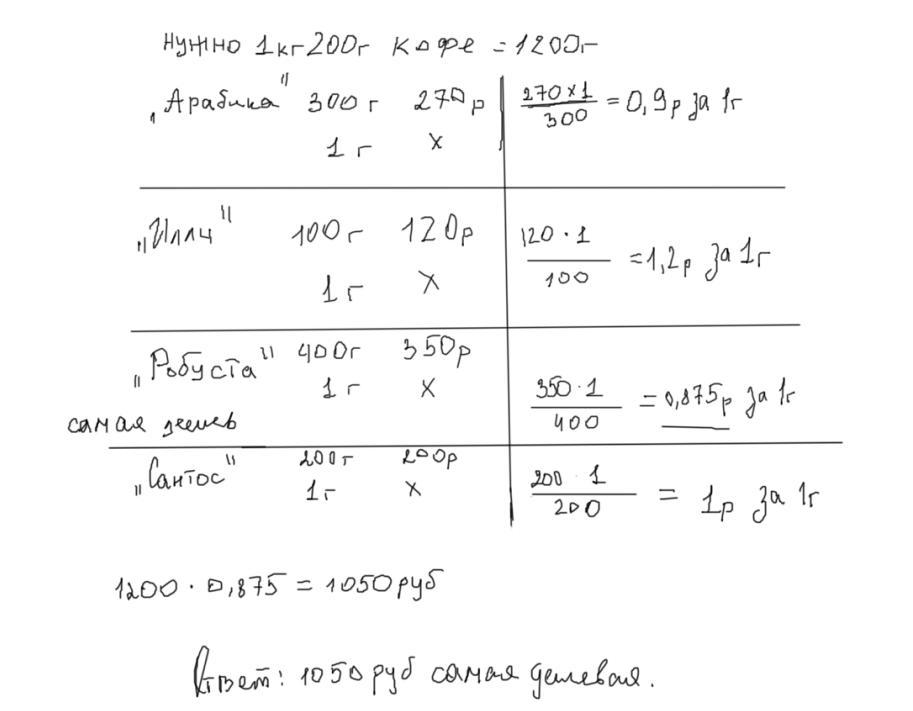 Нужно 1кг200г кофе = 1200г
"Арабика" 300г 270р 270×1/300 = 0,9р за 1г
1г х
"Илли" 100г 120р 120·1/100 = 1,2р за 1г
1г х
"Робуста" 400г 350р 350·1/400 = 0,875р за 1г
1г х
самая дешев
"Сантос" 200г 200р 200·1/200 = 1р за 1г
1г х
1200·0,875 = 1050руб
Ответ: 1050руб самая дешевая.